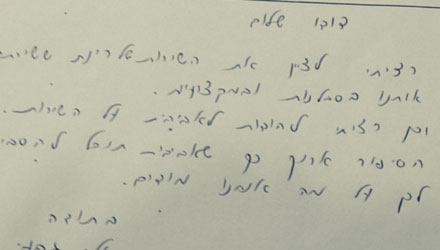 דודו שלום
רציתי לציין את השירותאלרינת ששירת
אותנו בסבלנות ובמקצועיות.
וכן רציתי להודות לאביבית על השירות.
הסיפור ארוך כך שאביבית תוכל להסבי
לך על מה אנחנו מודים.
בתודה